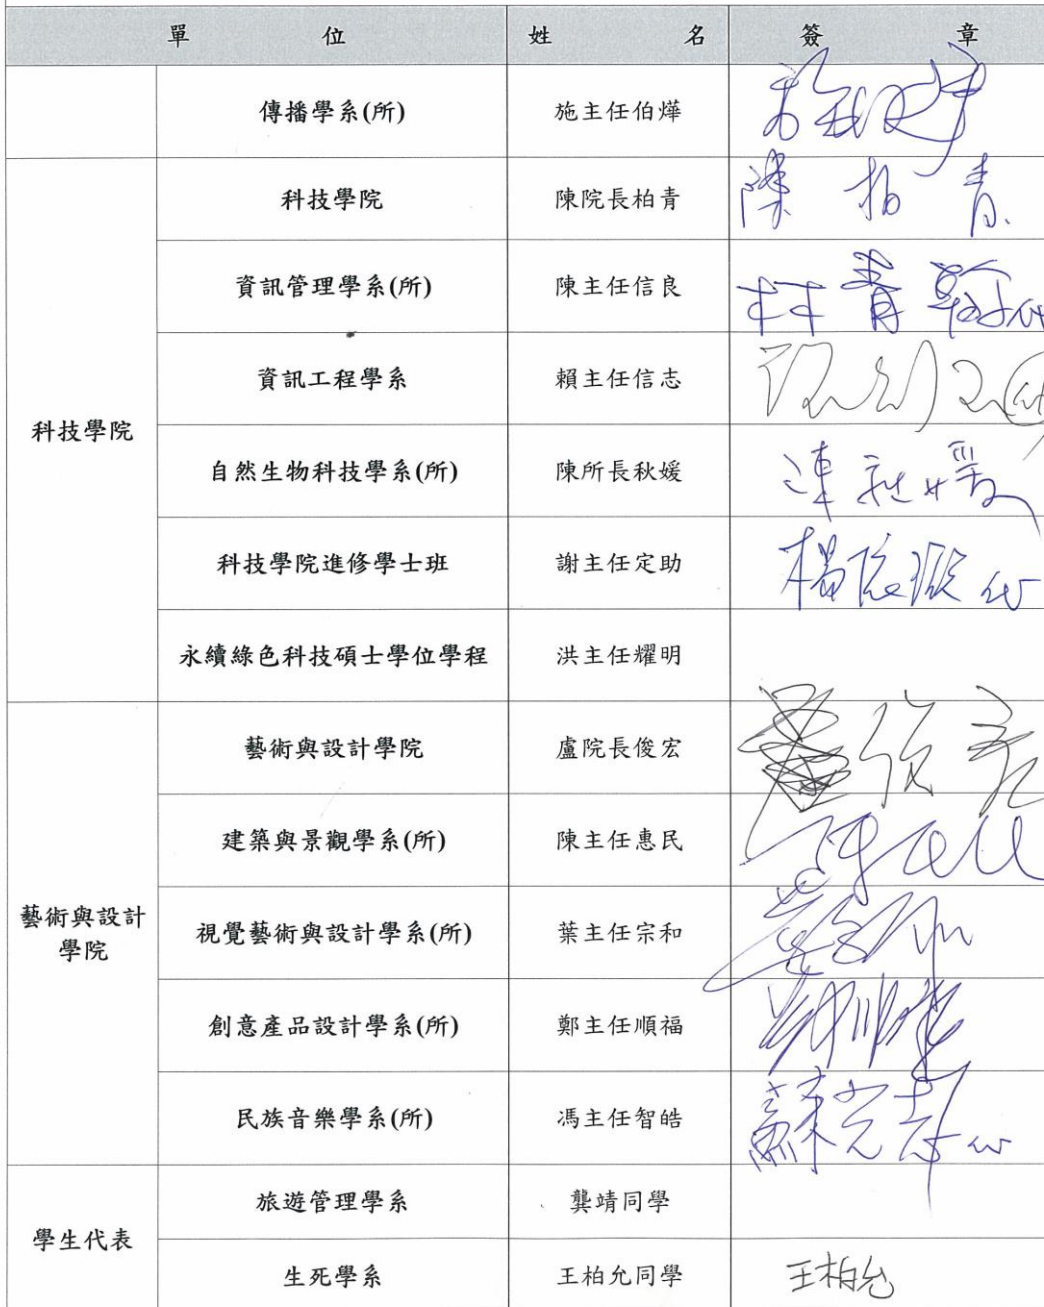 單位 姓名 簽章
傳播學系(所) 施主任伯燁
科技學院 科技學院 陳院長柏青 陳柏青
資訊管理學系(所) 陳主任信良 林青翰代
資訊工程學系 賴主任信志
自然生物科技學系(所) 陳所長秋媛 陳秋媛
科技學院進修學士班 謝主任定助 代
永續綠色科技碩士學位學程 洪主任耀明
藝術與設計學院 藝術與設計學院 盧院長俊宏 盧俊宏
建築與景觀學系(所) 陳主任惠民
視覺藝術與設計學系(所) 葉主任宗和
創意產品設計學系(所) 鄭主任順福
民族音樂學系(所) 馮主任智皓 代
學生代表 旅遊管理學系 龔靖同學
生死學系 王柏允同學 王柏允